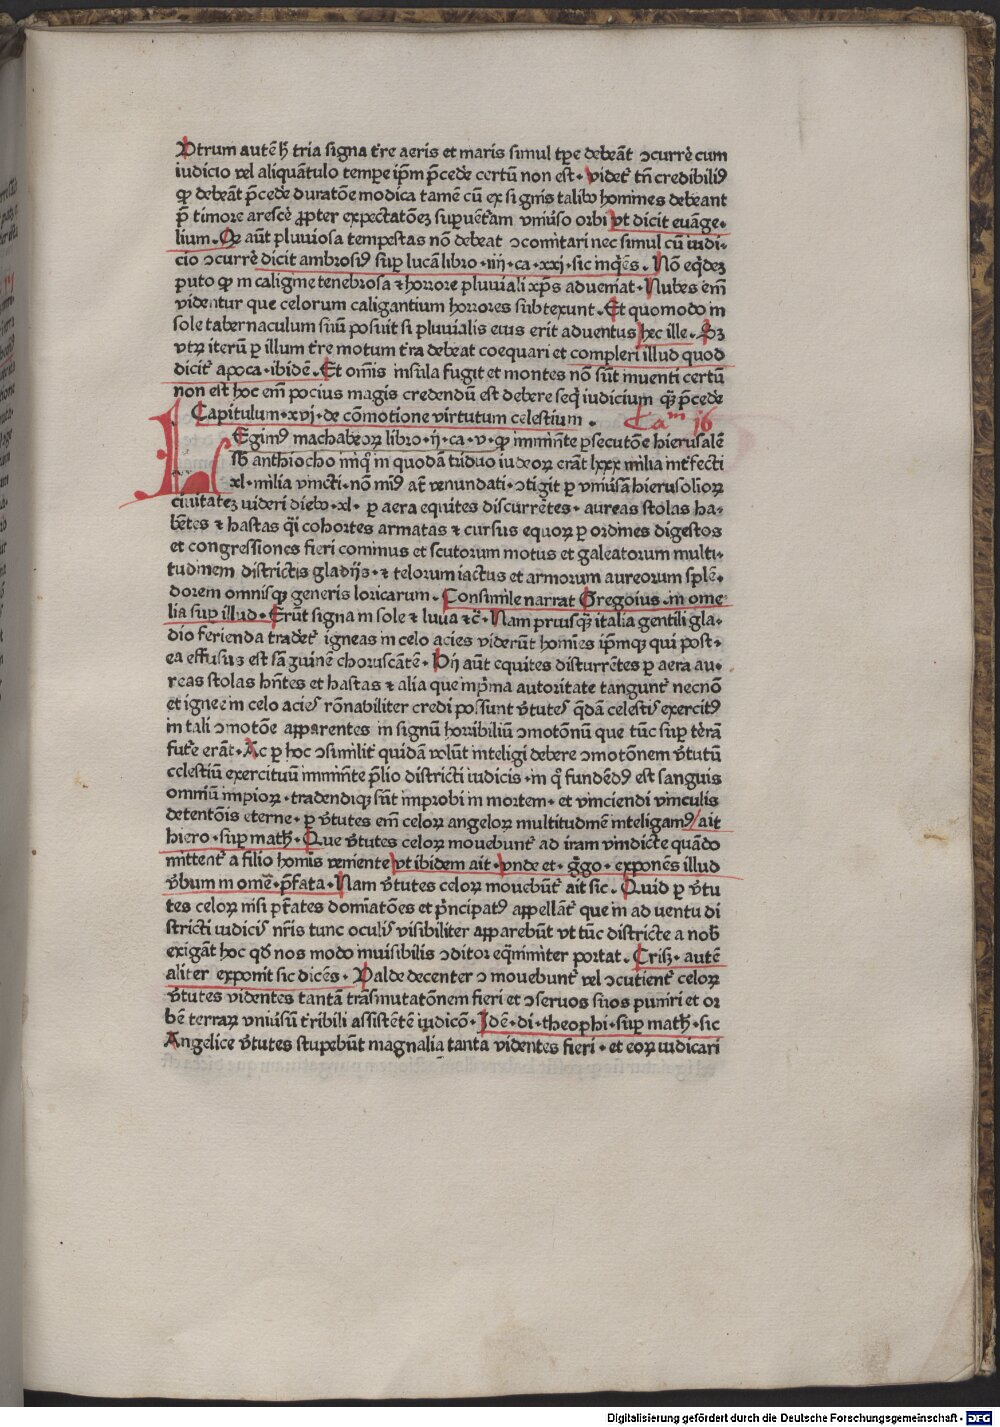 Vtrum autē h̄ tria signa t̄re aeris et maris simul tp̄e debeāt ↄcurrē cum
iudicio vel aliquātulo tempore ip̄m p̄cede certū non est· videt̄ tn̄ credibiliꝰ
qꝫ debeāt p̄cede duratōe modica tamē cū ex signis talibꝫ homines debeant
p̄ timore arescē ꝓpter expectatōeꝫ supuēt̄am vniūso orbi vt dicit euāge-
lium· Qꝫ aūt pluuiosa tempestas nō debeat ↄcomitari nec simul cū iudi-
cio ↄcurrē dicit ambrosiꝰ suꝑ lucā libro·iiij·ca·xxj·sic inq̄es· Nō eq̄deꝫ
puto qꝫ in caligine tenebrosa ⁊ horrore pluuiali xp̄s adveniat· Nubes em̄
videntur que celorum caligantium horrores subtexunt· Et quomodo in
sole tabernaculum suū posuit si pluuialis eius erit aduentus hec ille· Sꝫ
vtꝝ iterū ꝑ illum t̄re motum t̄ra debeat coequari et compleri illud quod
dicit̄ apoca·ibidē· Et om̄is insula fugit et montes nō sūt inuenti certū
non est hoc em̄ pocius magis credendū est debere seq̄ iudicium qꝫ p̄cede
Capitulum·xvj·de cōmotione virtutum celestium· Cam 16
LEgimꝰ machabeoꝝ libro·ij·ca·v·qꝫ imin̄te ꝑsecutōe hierusalē
sb̄ anthiocho iniq̄ in quodā triduo iudeoꝝ erāt lxxx milia int̄fecti
xl·milia vincti·nō minꝰ at̄ venundati·ↄtigit ꝑ vniūsā hierusolioꝝ
ciuitateꝫ videri diebꝫ·xl· ꝑ aera equites discurrētes· aureas stolas ha-
bētes ⁊ hastas q̄i cohortes armatas ⁊ cursus equoꝝ ꝑ ordines digestos
et congressiones fieri cominus et scutorum motus et galeatorum multi-
tudinem districtis gladijs·⁊ telorum iactus et armorum aureorum splē-
dorem omnisqꝫ generis loricarum· Consimile narrat Gregoius·in ome-
lia suꝑ illud· Erūt signa in sole ⁊ luua ⁊c̄· Nam pruisqꝫ italia gentili gla-
dio ferienda tradet̄ igneas in celo acies viderūt homīes ip̄mqꝫ qui post-
ea effusus est sāguinē choruscātē· Hij aūt equites disturrētes ꝑ aera au-
reas stolas hn̄tes et hastas ⁊ alia que in p̄ma autoritate tangunt̄ necnō
et ignee in celo acies rōnabiliter credi possunt v̄tutes q̄dā celestis exercitꝰ
in tali ↄmotōe apparentes in signū horibiliū ↄmotōnū que tūc suꝑ tērā
fut̄e erāt· Ac ꝑ hoc ↄsimilit̄ quidā volūt inteligi debere ↄmotōnem v̄tutū
celestiū exercituū imin̄te p̄lio districti iudicis·in q̄ fundēdꝰ est sanguis
omniū impioꝝ·tradendiqꝫ sūt improbi in mortem·et vinciendi vinculis
detentōis eterne·ꝑ v̄tutes em̄ celoꝝ angeloꝝ multitudinē inteligamꝰ/ ait
hiero·suꝑ math̄· Que v̄tutes celoꝝ mouebunt̄ ad iram vindicte quādo
mittent̄ a filio homīs veniente vt ibidem ait·vnde et·ḡgo·exponēs illud
v̄bum in omē·p̄fata· Nam v̄tutes celoꝝ mouebūt̄ ait sic· Quid ꝑ v̄tu
tes celoꝝ nisi p̄tātes domīatōes et p̄ncipatꝰ appellāt̄ que in ad uentu di
stricti iudicis nr̄is tunc oculis visibiliter apparebūt vt tūc districte a nob̄
exigāt hoc qd̄ nos modo inuisibilis ↄditor eq̄nimiter portat· Crisꝫ·autē
aliter exponit sic dicēs· Valde decenter ↄmouebunt̄ vel ↄcutient̄ celoꝝ
v̄tutes videntes tantā trāsmutatōnem fieri et ↄseruos suos puniri et or
bē terraꝝ vniūsū t̄ribili assistētē iudicō· Idē·di·theophi·suꝑ math̄·sic
Angelice v̄tutes stupebūt magnalia tanta videntes fieri·et eoꝝ iudicari
Digitalisierung gefördert durch die Deutsche Forschungsgemeinschaft - DFG